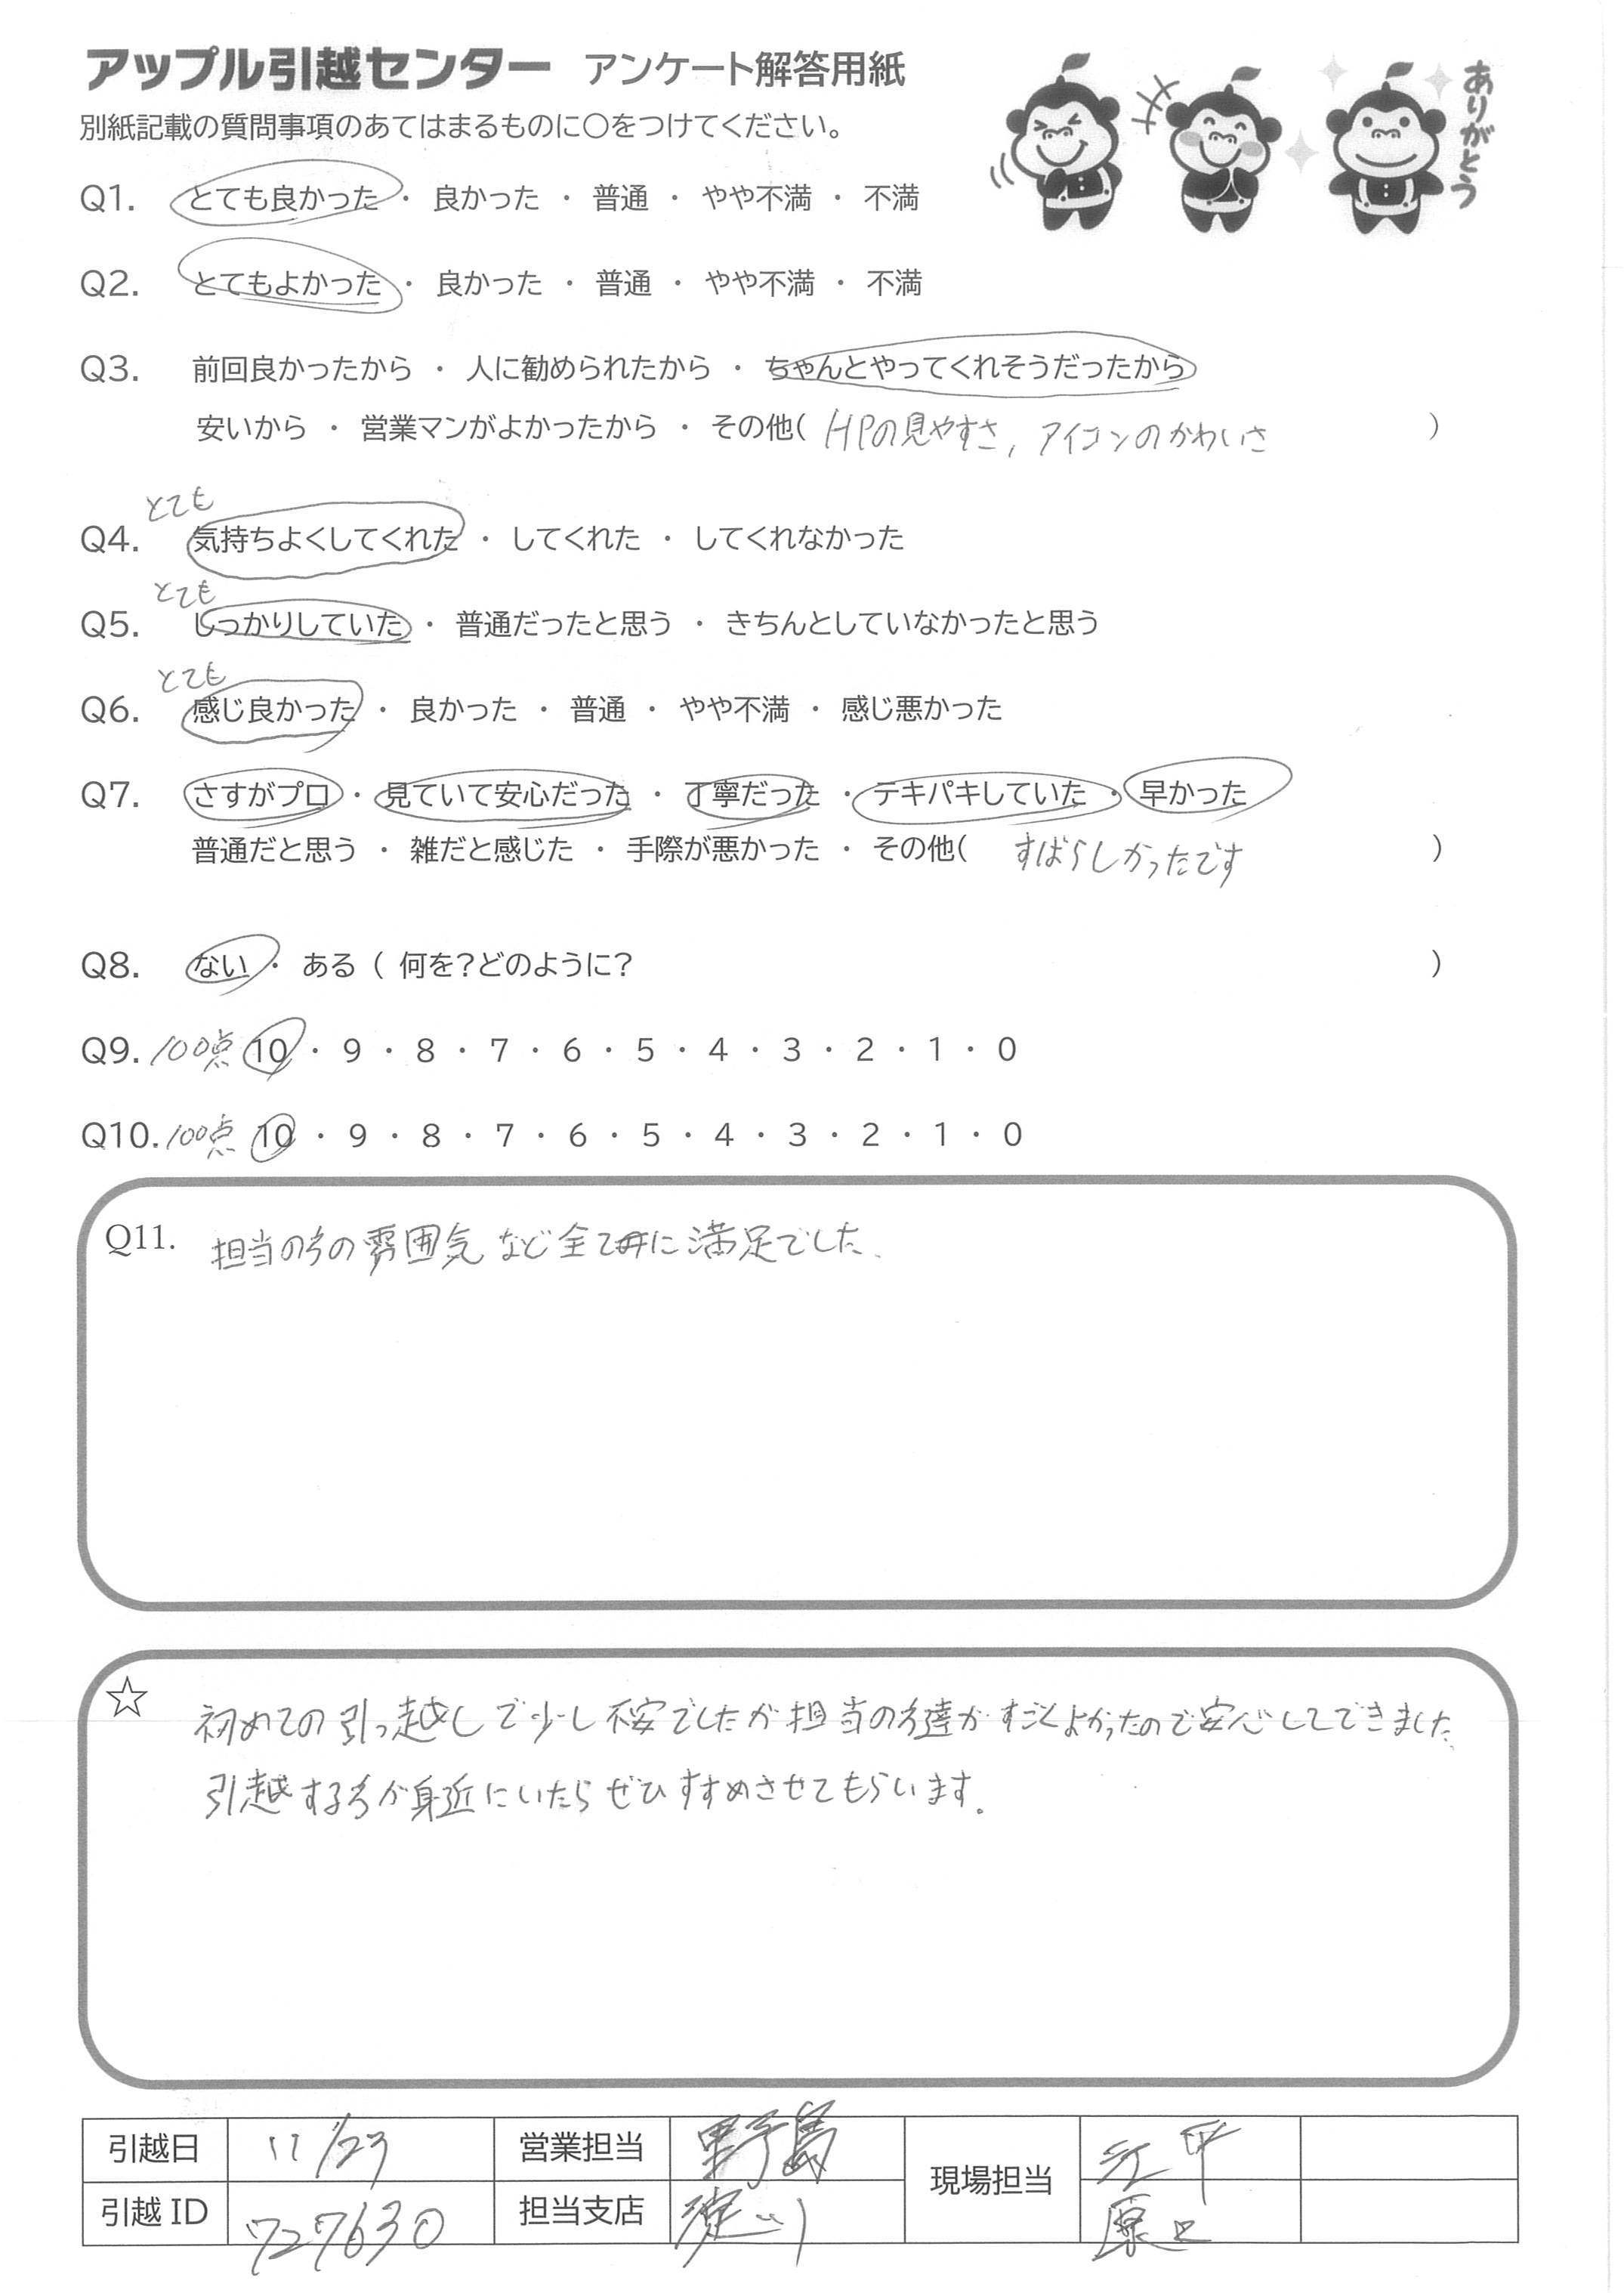 アップル引越センター アンケート解答用紙
別紙記載の質問事項のあてはまるものに○をつけてください。
ありがとう
Q1. とても良かった ・ 良かった ・ 普通 ・ やや不満 ・ 不満
Q2. とてもよかった ・ 良かった ・ 普通 ・ やや不満 ・ 不満
Q3. 前回良かったから ・ 人に勧められたから ・ ちゃんとやってくれそうだったから
安いから ・ 営業マンがよかったから ・ その他( HPの見やすさ, アイコンのかわいさ )
とても
Q4. 気持ちよくしてくれた ・ してくれた ・ してくれなかった
とても
Q5. しっかりしていた ・ 普通だったと思う ・ きちんとしていなかったと思う
とても
Q6. 感じ良かった ・ 良かった ・ 普通 ・ やや不満 ・ 感じ悪かった
Q7. さすがプロ ・ 見ていて安心だった ・ 丁寧だった ・ テキパキしていた ・ 早かった
普通だと思う ・ 雑だと感じた ・ 手際が悪かった ・ その他( すばらしかったです )
Q8. ない ・ ある ( 何を?どのように? )
Q9. 100点 10 ・ 9 ・ 8 ・ 7 ・ 6 ・ 5 ・ 4 ・ 3 ・ 2 ・ 1 ・ 0
Q10. 100点 10 ・ 9 ・ 8 ・ 7 ・ 6 ・ 5 ・ 4 ・ 3 ・ 2 ・ 1 ・ 0
Q11. 担当の方の雰囲気など全てに満足でした.
☆ 初めての引っ越しで少し不安でしたが担当の方達がすごくよかったので安心してできました.
引越する方が身近にいたらぜひすすめさせてもらいます.
引越日 11/23 営業担当 野島 現場担当
引越ID 727630 担当支店